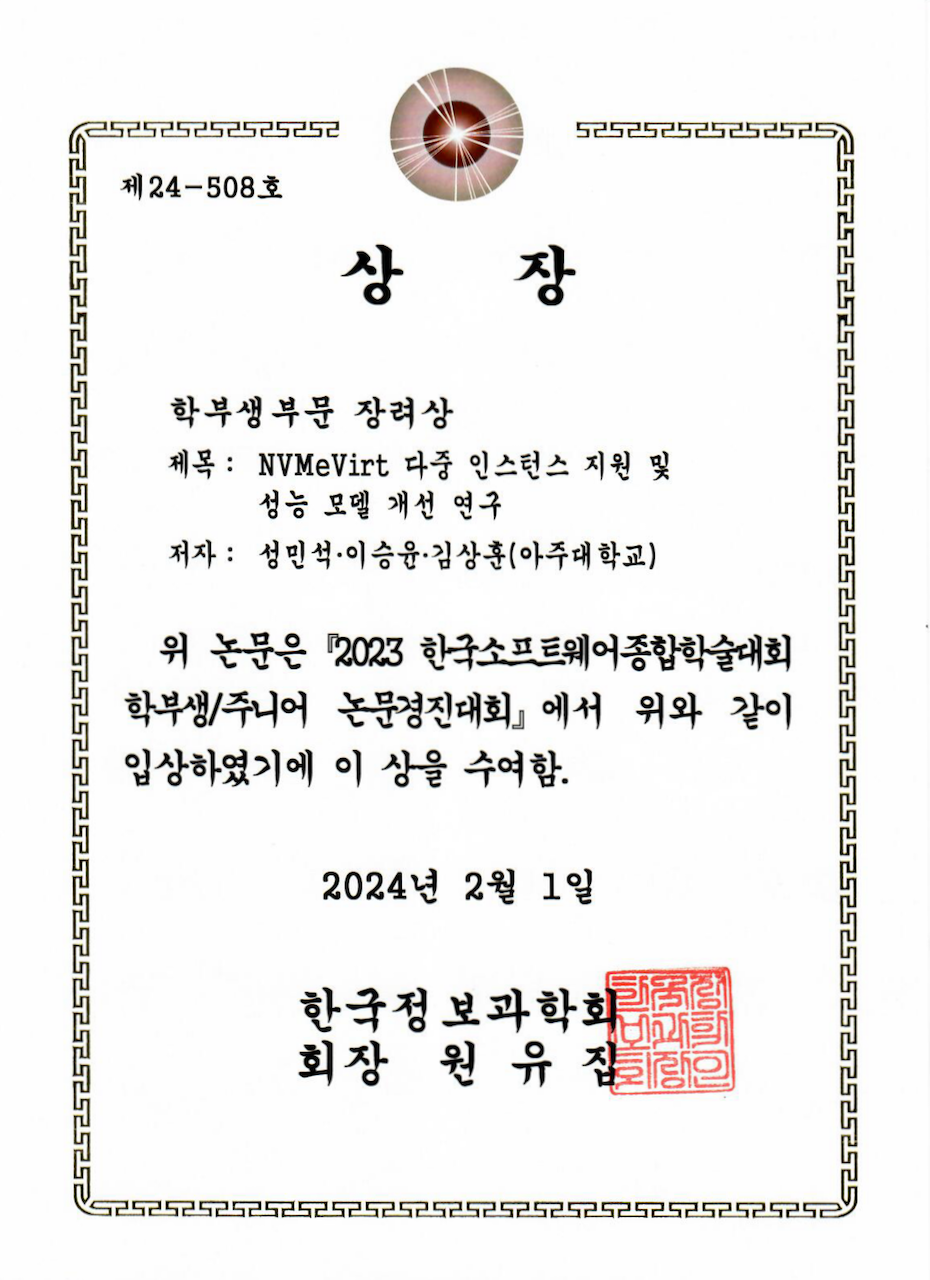 제24-508호
상 장
학부생부문 장려상
제목: NVMeVirt 다중 인스턴스 지원 및
성능 모델 개선 연구
저자: 성민석·이승윤·김상훈(아주대학교)
위 논문은 『2023 한국소프트웨어종합학술대회
학부생/주니어 논문경진대회』에서 위와 같이
입상하였기에 이 상을 수여함.
2024년 2월 1일
한국정보과학회
회장 원유집
한국정
보과학
회장인